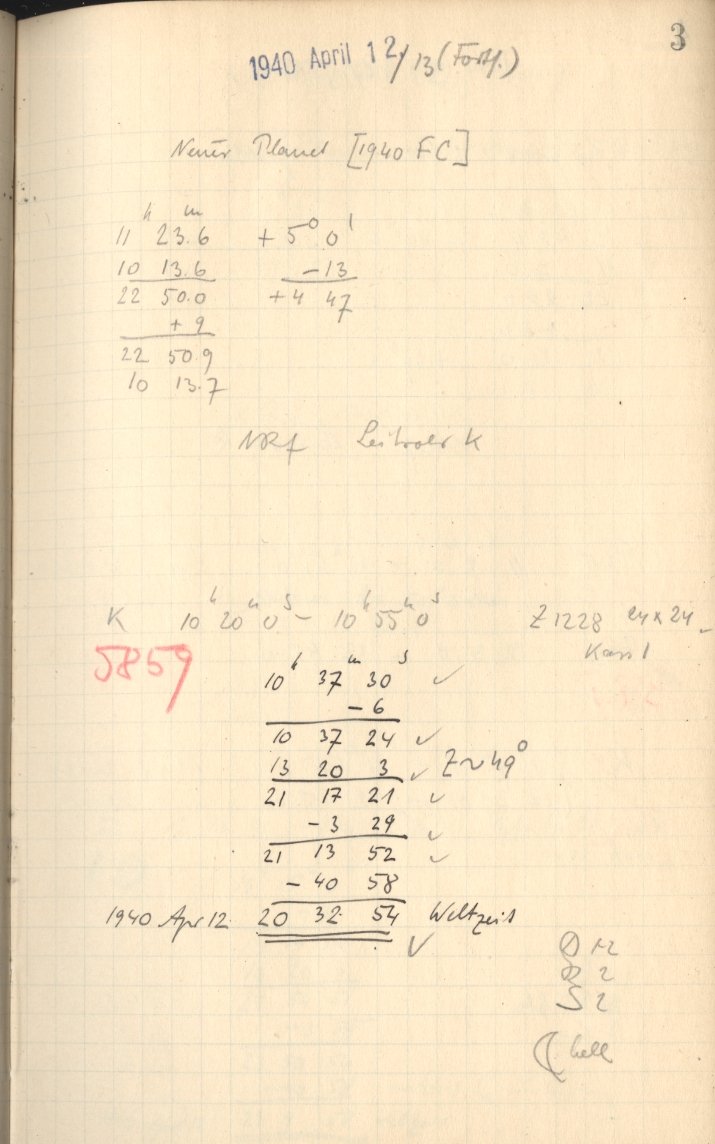 3
1940 April 12/13 (Forts.)
Neuer Planet [1940 FC]
h m
11 23.6 + 5° 0'
10 13.6 - 13
22 50.0 + 4 47
+ 9
22 50.9
10 13.7
Leitrohr K
K 10h 20m 0s - 10h 55m 0s Z 1228 24x24
5859
h m s
10 37 30 ✓
- 6
10 37 24 ✓
13 20 3 ✓ Z ~ 49°
21 17 21 ✓
- 3 29 ✓
21 13 52 ✓
- 40 58
1940 Apr 12. 20 32 54 Weltzeit
✓
1-2
R 2
S 2
☾ hell